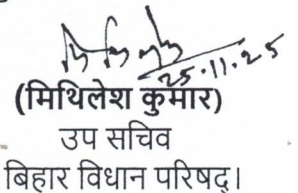 25.11.25
(मिथिलेश कुमार)
उप सचिव
बिहार विधान परिषद्।